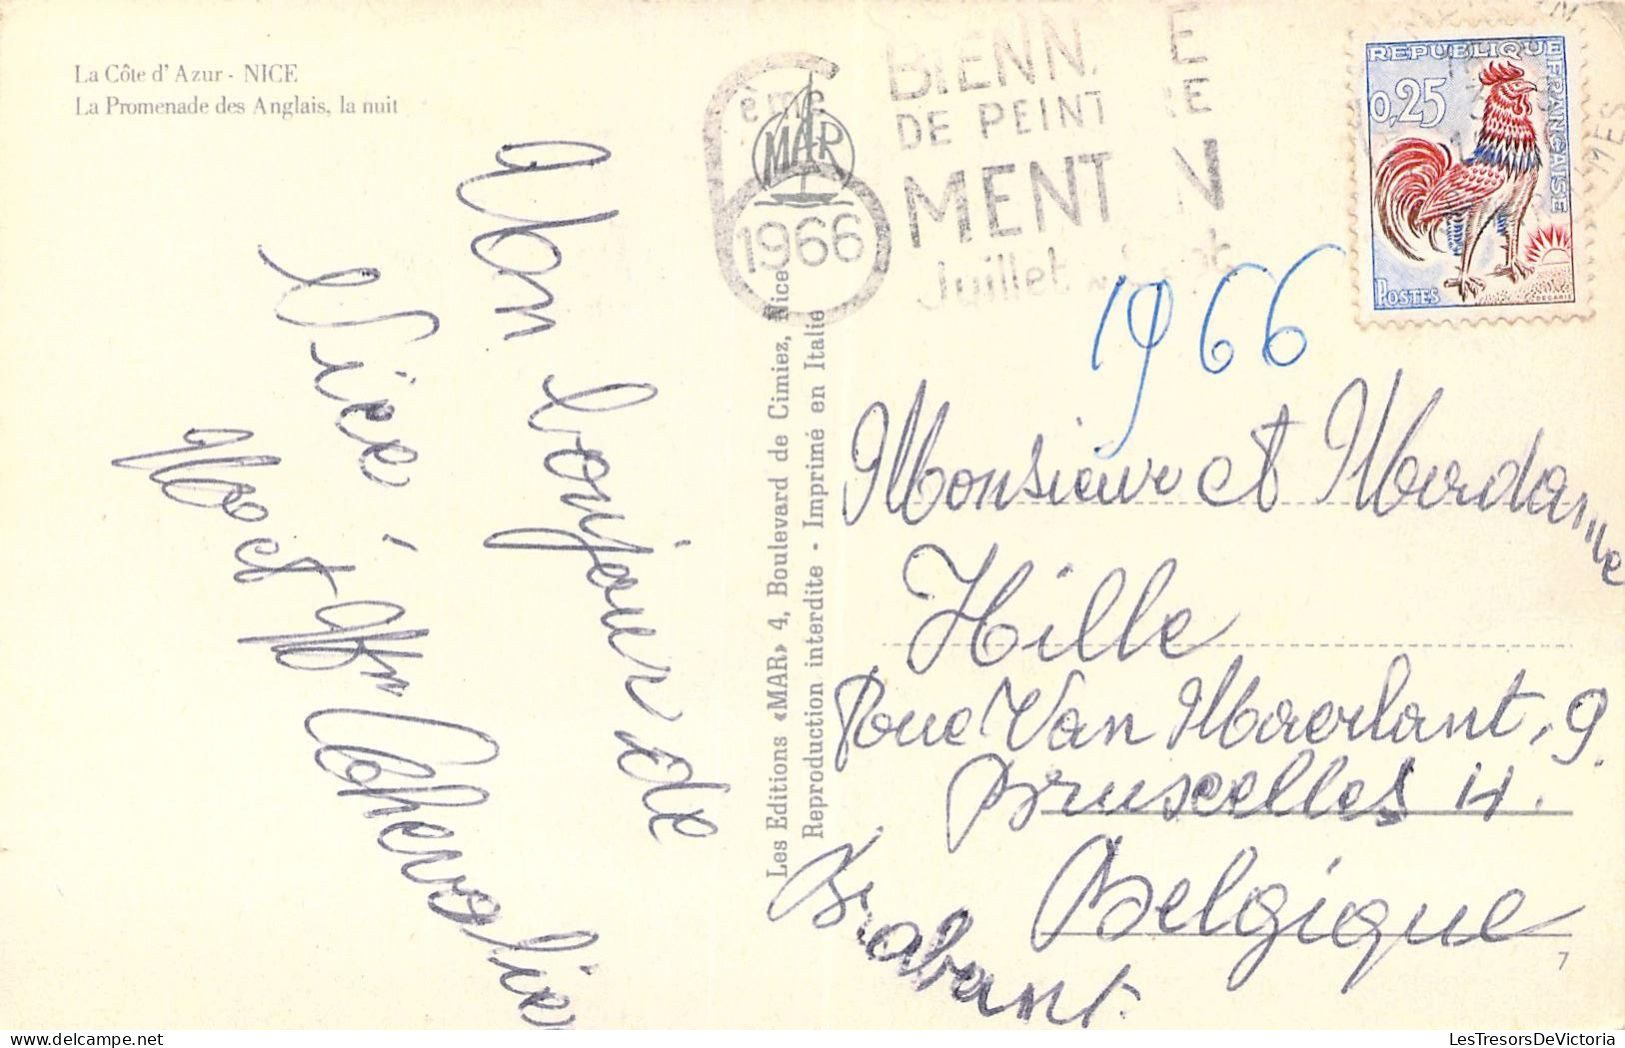 La Côte d'Azur - NICE
La Promenade des Anglais, la nuit
Un bonjour de
Nice,
Mr et Mme Chevalier
Les Editions «MAR» 4, Boulevard de Cimiez, Nice
Reproduction interdite - Imprimé en Italie
MAR
6 eme
1966
BIENN E
DE PEINT RE
MENT N
Juillet
REPUBLIQUE FRANÇAISE
0,25
POSTES
DECARIS
1966
Monsieur et Madame
Hille
Rue Van Maerlant, 9.
Bruxelles 4.
Belgique
Brabant.
7
LesTresorsDeVictoria.com